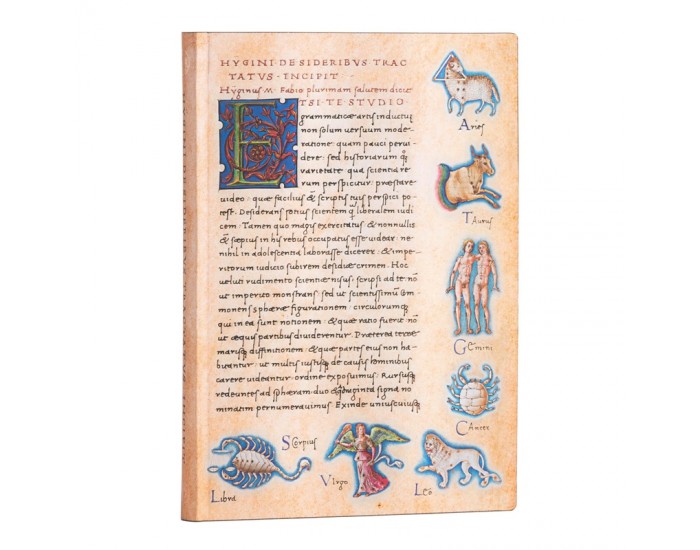 HYGINI·DE·SIDERIBVS TRAC
TATVS·INCIPIT·
Hyginus·M·Fabio plurimam salutem dicit
ETSI·TE·STVDIO
grammaticae artis inductus
non solum versuum mode-
ratione quam pauci pervi-
dere: sed historiarum q̃
varietate qua scientia re-
rum perspicitur: praestare
video: quae facilius & scriptis tuis perspici po-
test. Desiderans potius scientem q̃ liberalem iudi
cem: Tamen quo magis exercitatus: & nonnullis
& saepius in his rebus occupatus esse videar: ne
nihil in adolescentia laborasse dicerer: & impe-
ritorum iudicio subirem desidiae crimen. Hoc
velut rudimento scientiae nisus: scripsi ad te: nõ
ut imperito monstrans: sed ut scientissimũ cõ-
monens sphaerae figurationem: circulorumq
qui in ea sunt notionem: & quae ratio fuerit: nõ
ut aequis partibus dividerentur. Praeterea terrae
marisq diffinitionem: & quae partes eius non ha-
bitantur: ut multis iustisq de causis hominibus
carere videantur: ordine exposuimus. Rursusq
redeuntes ad sphaeram: duo & quadraginta signa no
minatim pernumeravimus. Exinde uniuscuiusq
Aries
Taurus
Gemini
Cancer
Scorpius
Libra
Virgo
Leo